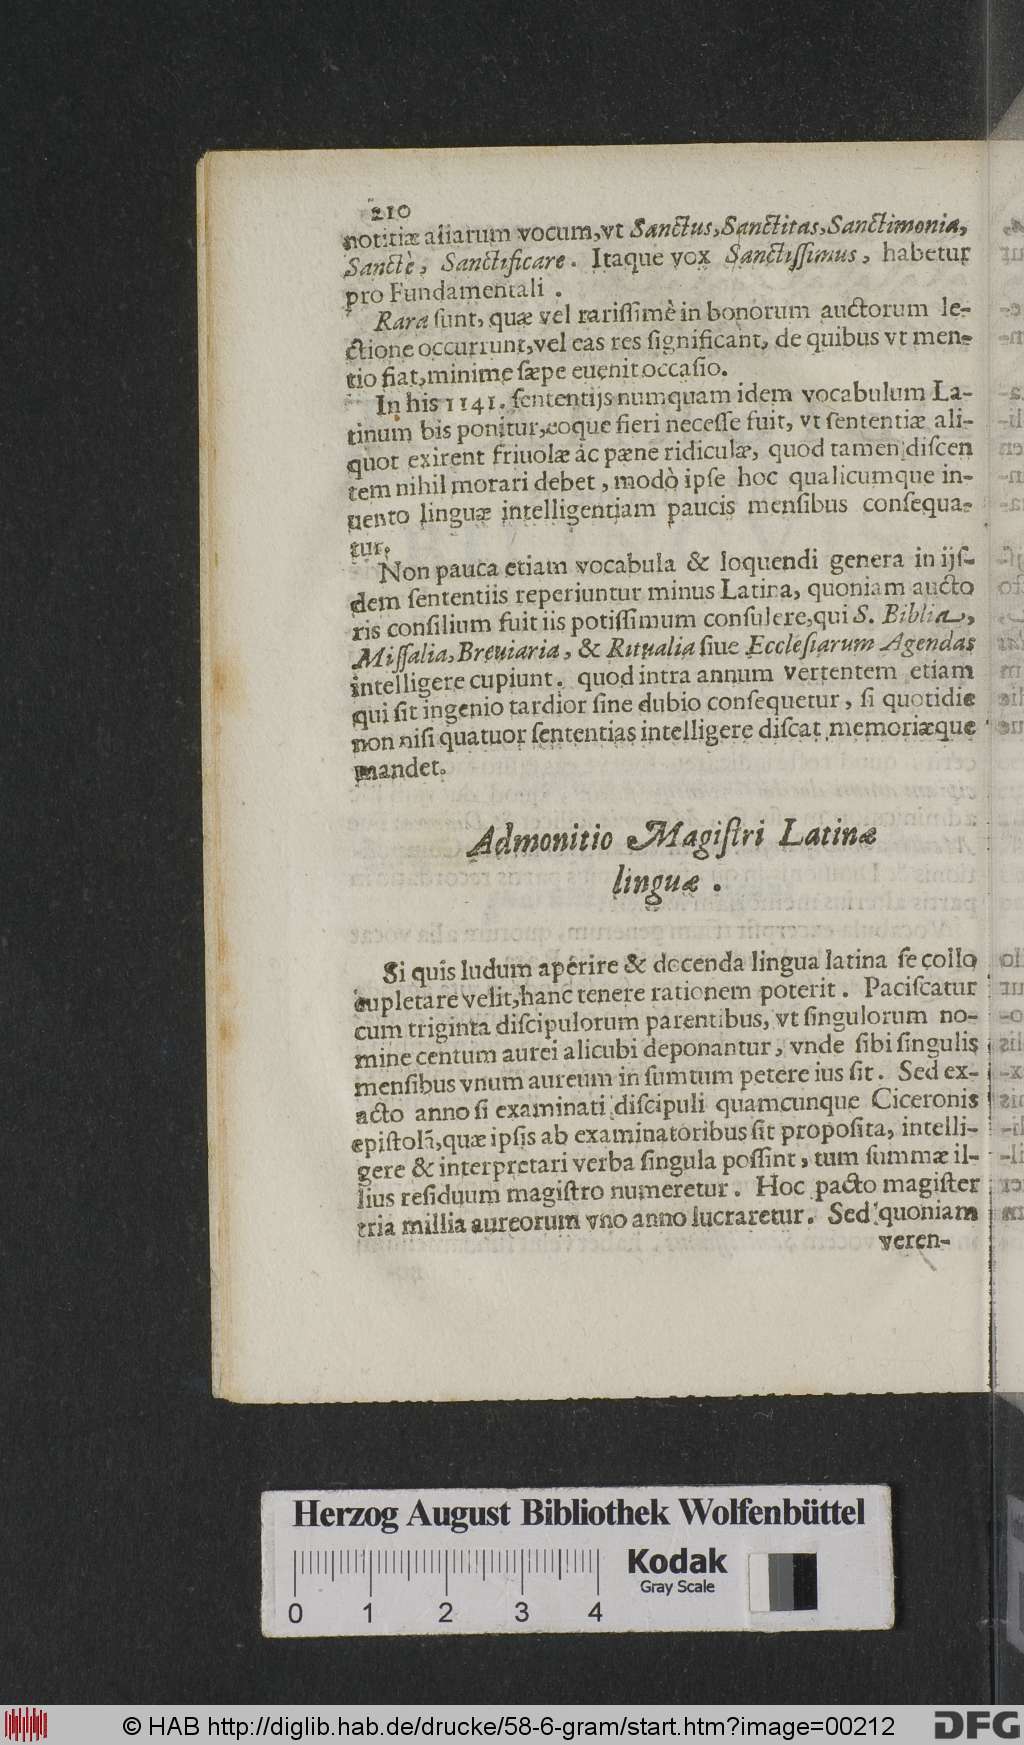 210
notitiæ aliarum vocum, vt Sanctus, Sanctitas, Sanctimonia,
Sanctè, Sanctificare. Itaque vox Sanctissimus, habetur
pro Fundamentali.
Rara sunt, quæ vel rarissimè in bonorum auctorum le-
ctione occurrunt, vel eas res significant, de quibus vt men-
tio fiat, minime sæpe euenit occasio.
In his 1141. sententijs numquam idem vocabulum La-
tinum bis ponitur, eoque fieri necesse fuit, vt sententiæ ali-
quot exirent friuolæ ac pæne ridiculæ, quod tamen discen
tem nihil morari debet, modò ipse hoc qualicumque in-
uento linguæ intelligentiam paucis mensibus consequa-
tur.
Non pauca etiam vocabula & loquendi genera in ijs-
dem sententiis reperiuntur minus Latina, quoniam aucto
ris consilium fuit iis potissimum consulere, qui S. Biblia,
Missalia, Breuiaria, & Ritualia siue Ecclesiarum Agendas
intelligere cupiunt. quod intra annum vertentem etiam
qui sit ingenio tardior sine dubio consequetur, si quotidie
non nisi quatuor sententias intelligere discat memoriæque
mandet.
Admonitio Magistri Latinæ
linguæ.
Si quis ludum aperire & docenda lingua latina se collo
cupletare velit, hanc tenere rationem poterit. Paciscatur
cum triginta discipulorum parentibus, vt singulorum no-
mine centum aurei alicubi deponantur, vnde sibi singulis
mensibus vnum aureum in sumtum petere ius sit. Sed ex-
acto anno si examinati discipuli quamcunque Ciceronis
epistolã, quæ ipsis ab examinatoribus sit proposita, intelli-
gere & interpretari verba singula possint, tum summæ il-
lius residuum magistro numeretur. Hoc pacto magister
tria millia aureorum vno anno lucraretur. Sed quoniam
veren-
Herzog August Bibliothek Wolfenbüttel
Kodak
Gray Scale
0 1 2 3 4
© HAB http://diglib.hab.de/drucke/58-6-gram/start.htm?image=00212
DFG